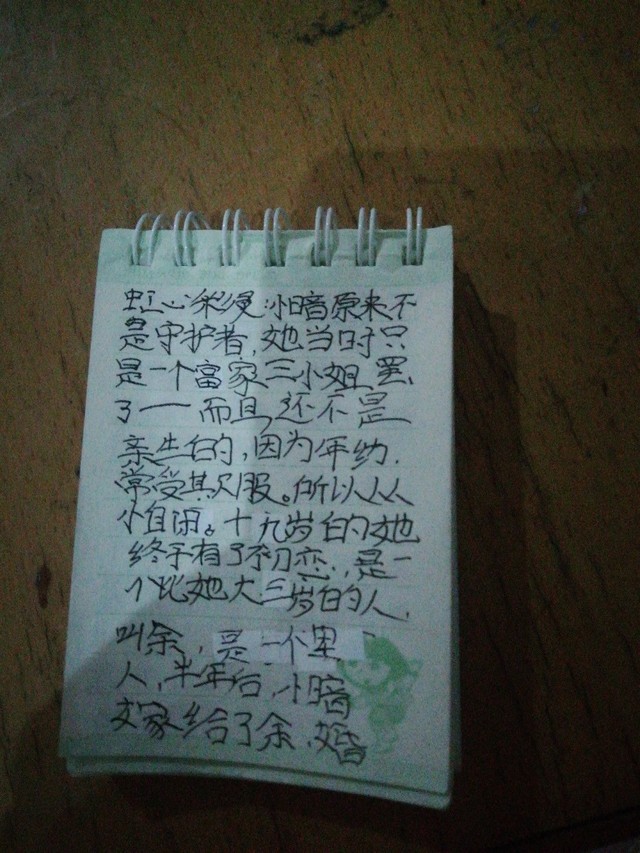 虹心柒漫:小暗原来不
是守护者,她当时只
是一个富家三小姐罢
了——而且还不是
亲生的,因为年幼.
常受其欺服。所以从
小自闭。十九岁的她
终于有了初恋,是一
个比她大三岁的人,
叫余,是一个黑
人,半年后,小暗
嫁给了余,婚